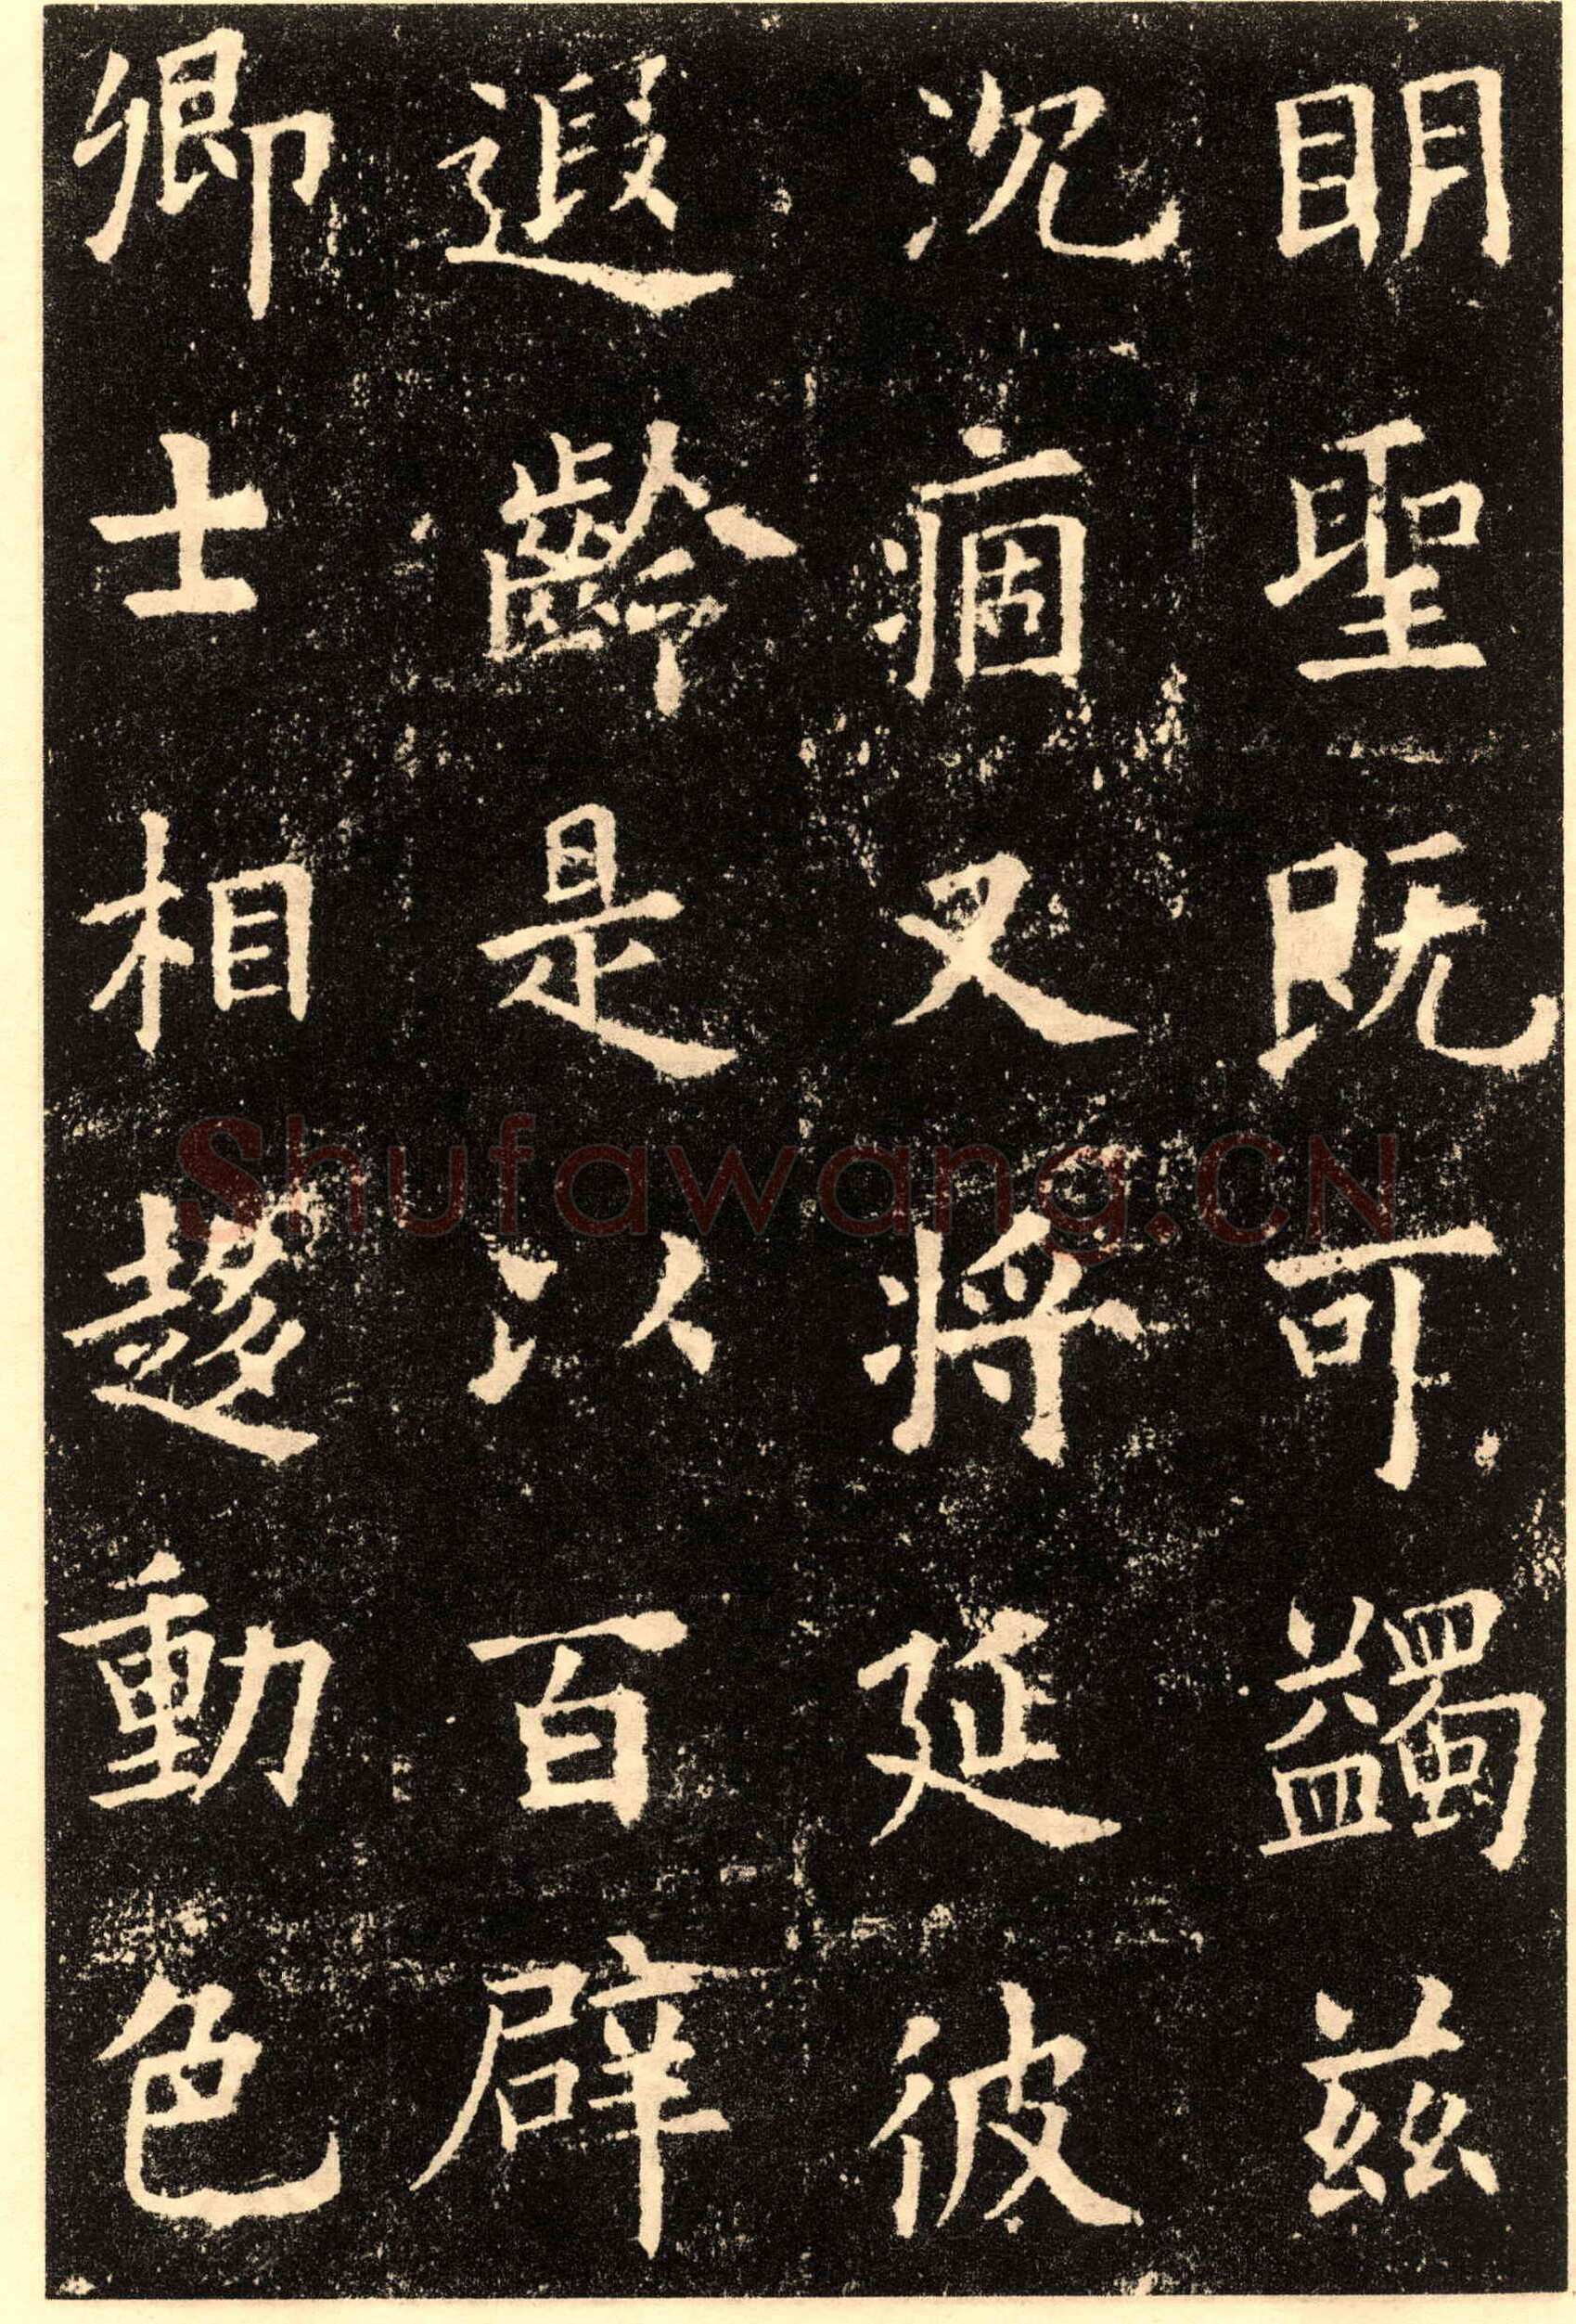 明聖既可蠲兹
沉痼又将延彼
遐齡是以百辟
卿士相趍動色
Shufawang.CN